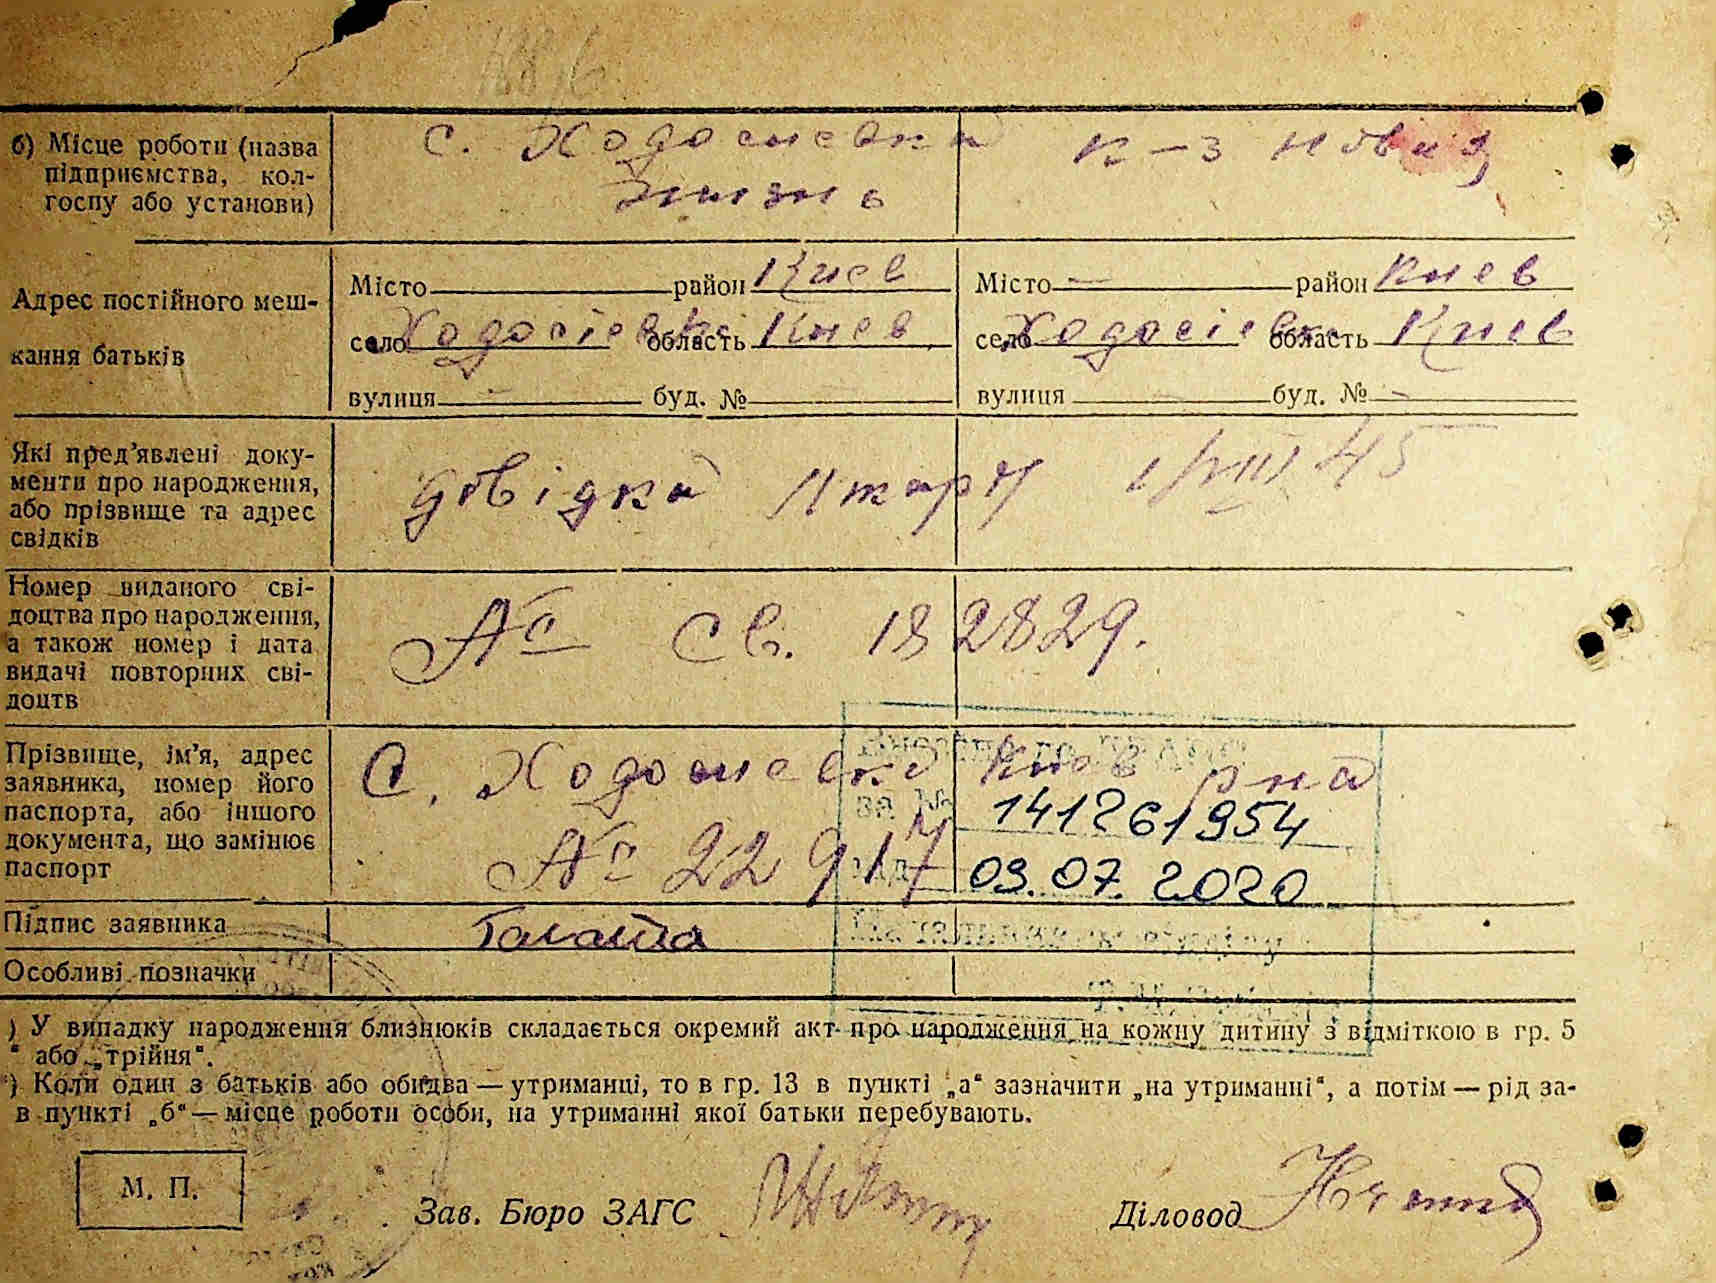 б) Місце роботи (назва
підприємства, кол-
госпу або установи)
с. Ходосиевка к-з новая
жизнь
Адрес постійного меш-
кання батьків
Місто район Киев
село Ходосіевка область Киев.
вулиця — буд. №
Місто — район Киев
село Ходосіевка область Киев
вулиця буд. № —
Які пред’явлені доку-
менти про народження,
або прізвище та адрес
свідків
довідка 45
Номер виданого сві-
доцтва про народження,
а також номер і дата
видачі повторних сві-
доцтв
№ св. 182829.
Прізвище, ім’я, адрес
заявника, номер його
паспорта, або іншого
документа, що замінює
паспорт
с. Ходосиевка Киев рна
№ 22917
за № 141261954
від 03.07.2020
Підпис заявника
Особливі позначки
) У випадку народження близнюків складається окремий акт про народження на кожну дитину з відміткою в гр. 5
“ або „трійня“.
) Коли один з батьків або обидва — утриманці, то в гр. 13 в пункті „а“ зазначити „на утриманні“, а потім — рід за-
в пункті „б“ — місце роботи особи, на утриманні якої батьки перебувають.
М. П.
Зав. Бюро ЗАГС
Діловод